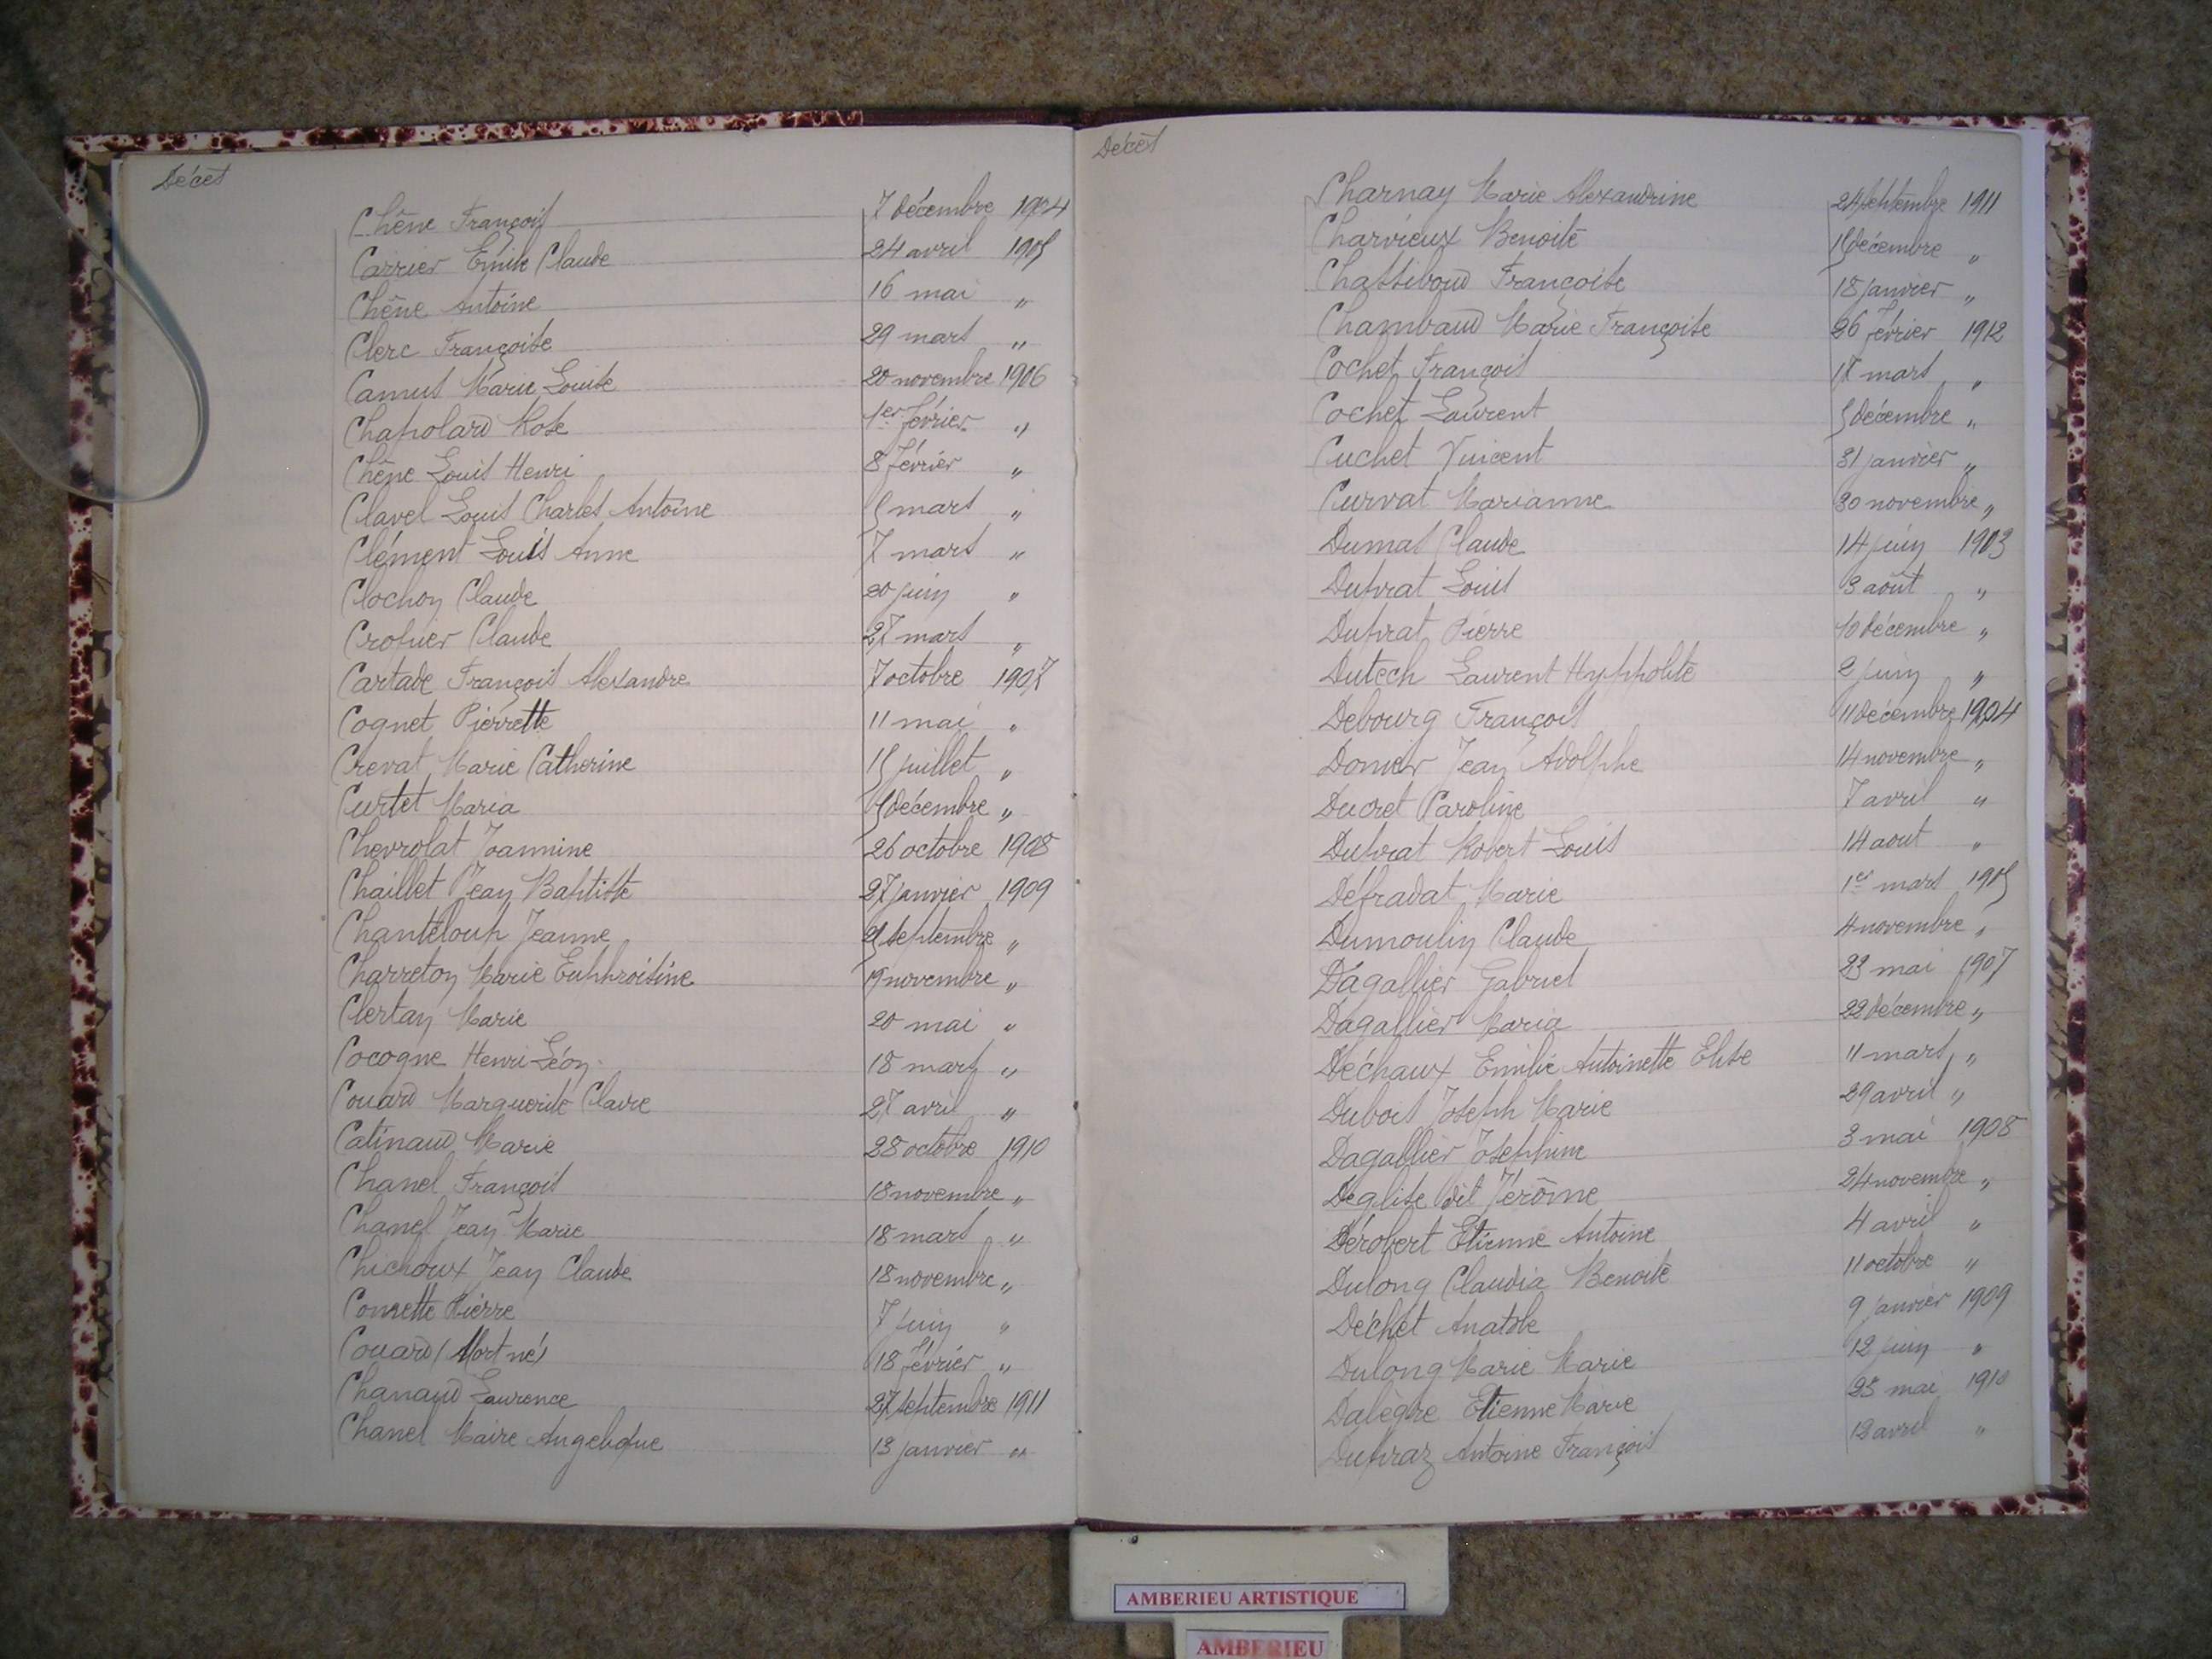 Décès
Chêne François 7 décembre 1904
Carrier Emile Claude 24 avril 1905
Chêne Antoine 16 mai "
Clerc Françoise 29 mars "
Camus Marie Louise 20 novembre 1906
Chapolard Rose 1er février "
Chêne Louis Henri 8 février "
Clavel Louis Charles Antoine 5 mars "
Clément Louis Anne 7 mars "
Clochon Claude 20 juin "
Cropier Claude 27 mars "
Cartade François Alexandre 7 octobre 1907
Cognet Pierrette 11 mai "
Crevat Marie Catherine 15 juillet "
Curtet Maria 5 décembre "
Chevrolat Joannine 26 octobre 1908
Chaillet Jean Baptiste 27 janvier 1909
Chanteloup Jeanne septembre "
Charreton Marie Euphroisine 19 novembre "
Clertan Marie 20 mai "
Cocogne Henri Léon 18 mars "
Couard Marguerite Claire 27 avril "
Catinaud Marie 28 octobre 1910
Chanel François 18 novembre "
Chanel Jean Marie 18 mars "
Chichoux Jean Claude 18 novembre "
Comette Pierre 7 juin "
Couard (Mort né) 18 février "
Chanaud Laurence 27 septembre 1911
Chanel Maire Angelique 13 janvier "
Décès
Charnay Marie Alexandrine 24 septembre 1911
Charvieux Benoite 15 décembre "
Chassiboud Françoise 18 janvier "
Chambaud Marie Françoise 26 février 1912
Cochet François 17 mars "
Cochet Laurent 5 décembre "
Cuchet Vincent 31 janvier "
Curvat Marianne 30 novembre "
Dumas Claude 14 juin 1903
Duprat Louis 3 août "
Duprat Pierre 10 décembre "
Dutech Laurent Hyppolite 2 juin "
Debourg François 11 décembre 1904
Donier Jean Adolphe 14 novembre "
Ducret Caroline 7 avril "
Duprat Robert Louis 14 aout "
Défradat Marie 1er mars 1905
Dumoulin Claude 4 novembre "
Dagallier Gabriel 23 mai 1907
Dagallier Maria 22 décembre "
Déchaux Emilie Antoinette Elise 11 mars "
Dubois Joseph Marie 29 avril "
Dagallier Josephine 3 mai 1908
Déglise dit Jérôme 24 novembre "
Dérobert Etienne Antoine 4 avril "
Dulong Claudia Benoite 11 octobre "
Déchet Anatole 9 janvier 1909
Dulong Marie Marie 12 juin "
Dalègre Etienne Marie 25 mai 1910
Dupraz Antoine François 12 avril "
AMBERIEU ARTISTIQUE
AMBERIEU